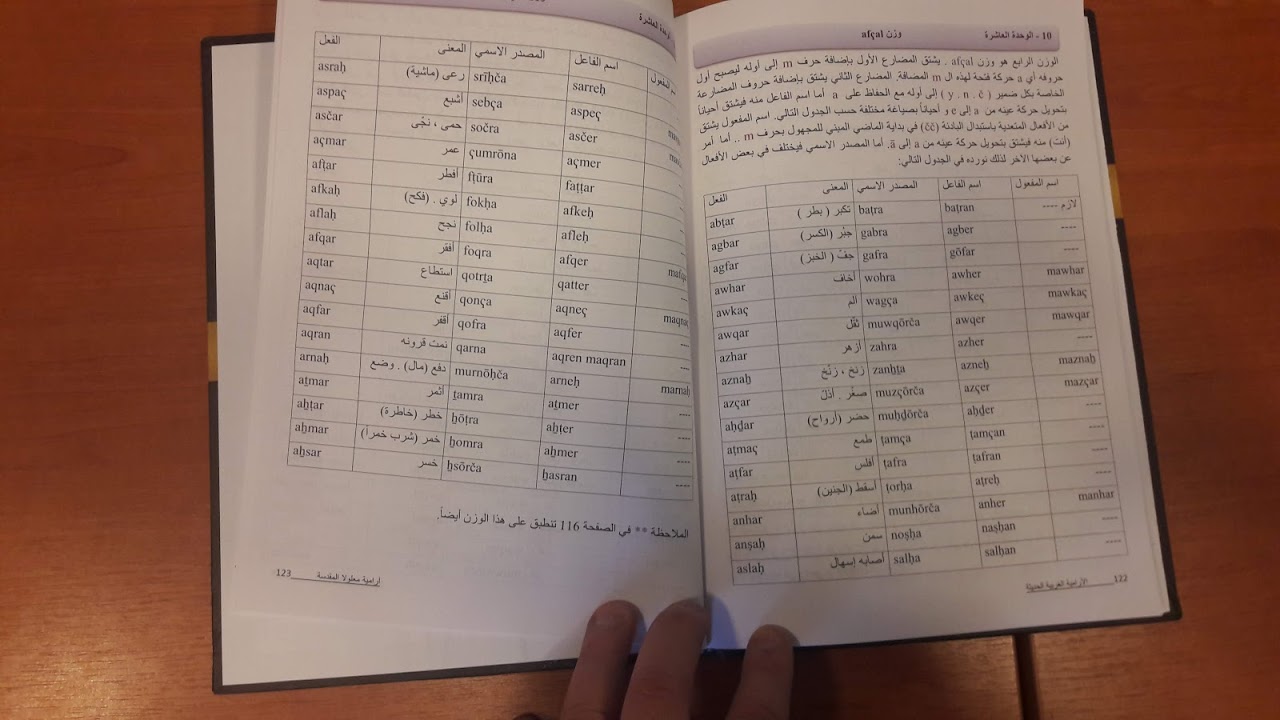 10 - الوحدة العاشرة وزن afçal
الوزن الرابع هو وزن afçal . يشتق المضارع الأول بإضافة حرف m إلى أوله ليصبح أول
حروفه أي a حركة فتحة لهذه ال m المضافة. المضارع الثاني يشتق بإضافة حروف المضارعة
الخاصة بكل ضمير ( y . n . č ) إلى أوله مع الحفاظ على a أما اسم الفاعل منه فيشتق أحياناً
بتحويل حركة عينه من a إلى e و أحياناً بصياغة مختلفة حسب الجدول التالي. اسم المفعول يشتق
من الأفعال المتعدية باستبدال البادئة (čč) في بداية الماضي المبني للمجهول بحرف m .. أما أمر
(أنت) منه فيشتق بتحويل حركة عينه من a إلى ā. أما المصدر الاسمي فيختلف في بعض الأفعال
عن بعضها الآخر لذلك نورده في الجدول التالي:
الفعل المعنى المصدر الاسمي اسم الفاعل اسم المفعول
abṭar تكبر ( بطر ) baṭra baṭran لازم ----
agbar جبْر (الكسر) gabra agber ----
agfar جفّ ( الخبز) gafra gōfar ----
awhar أخاف wohra awher mawhar
awkaç ألم wagça awkeç mawkaç
awqar ثقّل muwqōrča awqer mawqar
azhar أزهر zahra azher ----
aznaḫ زنخ ، زنّخ zanḫṯa azneḫ maznaḫ
azçar صغّر . أذلّ muzçōrča azçer mazçar
aḥḏar حضر (أرواح) muḥḏōrča aḥḏer ----
aṭmaç طمع ṭamça ṭamçan ----
aṭfar أفلس ṭafra ṭafran ----
aṭraḥ أسقط (الجنين) ṭorḥa aṭreḥ ----
anhar أضاء munhōrča anher manhar
anṣaḥ سمن noṣḥa naṣḥan ----
aslaḥ أصابه إسهال salḥa salḥan ----
الآرامية الغربية الحديثة 122
الوحدة العاشرة
الفعل المعنى المصدر الاسمي اسم الفاعل
asraḥ رعى (ماشية) srīḥča sarreḥ
aspaç أشبع sebça aspeç
asčar حمى ، نجّى sočra asčer
açmar عمر çumrōna açmer
afṭar أفطر fṭūra faṭṭar
afkaḥ لوي . (فكح) fokḥa afkeḥ
aflaḥ نجح folḥa afleḥ
afqar أفقر foqra afqer
aqtar استطاع qotrṯa qatter
aqnaç أقنع qonça aqneç
aqfar أقفر qofra aqfer ----
aqran نمت قرونه qarna aqren maqran
arnaḥ دفع (مال) . وضع murnōḥča arneḥ marnaḥ
aṯmar أثمر ṯamra aṯmer ----
aḫṭar خطر (خاطرة) ḫōṭra aḫṭer ----
aḫmar خمر (شرب خمراً) ḫomra aḫmer ----
aḫsar خسر ḫsōrča ḫasran ----
الملاحظة ** في الصفحة 116 تنطبق على هذا الوزن أيضاً.
آرامية معلولا المقدسة 123